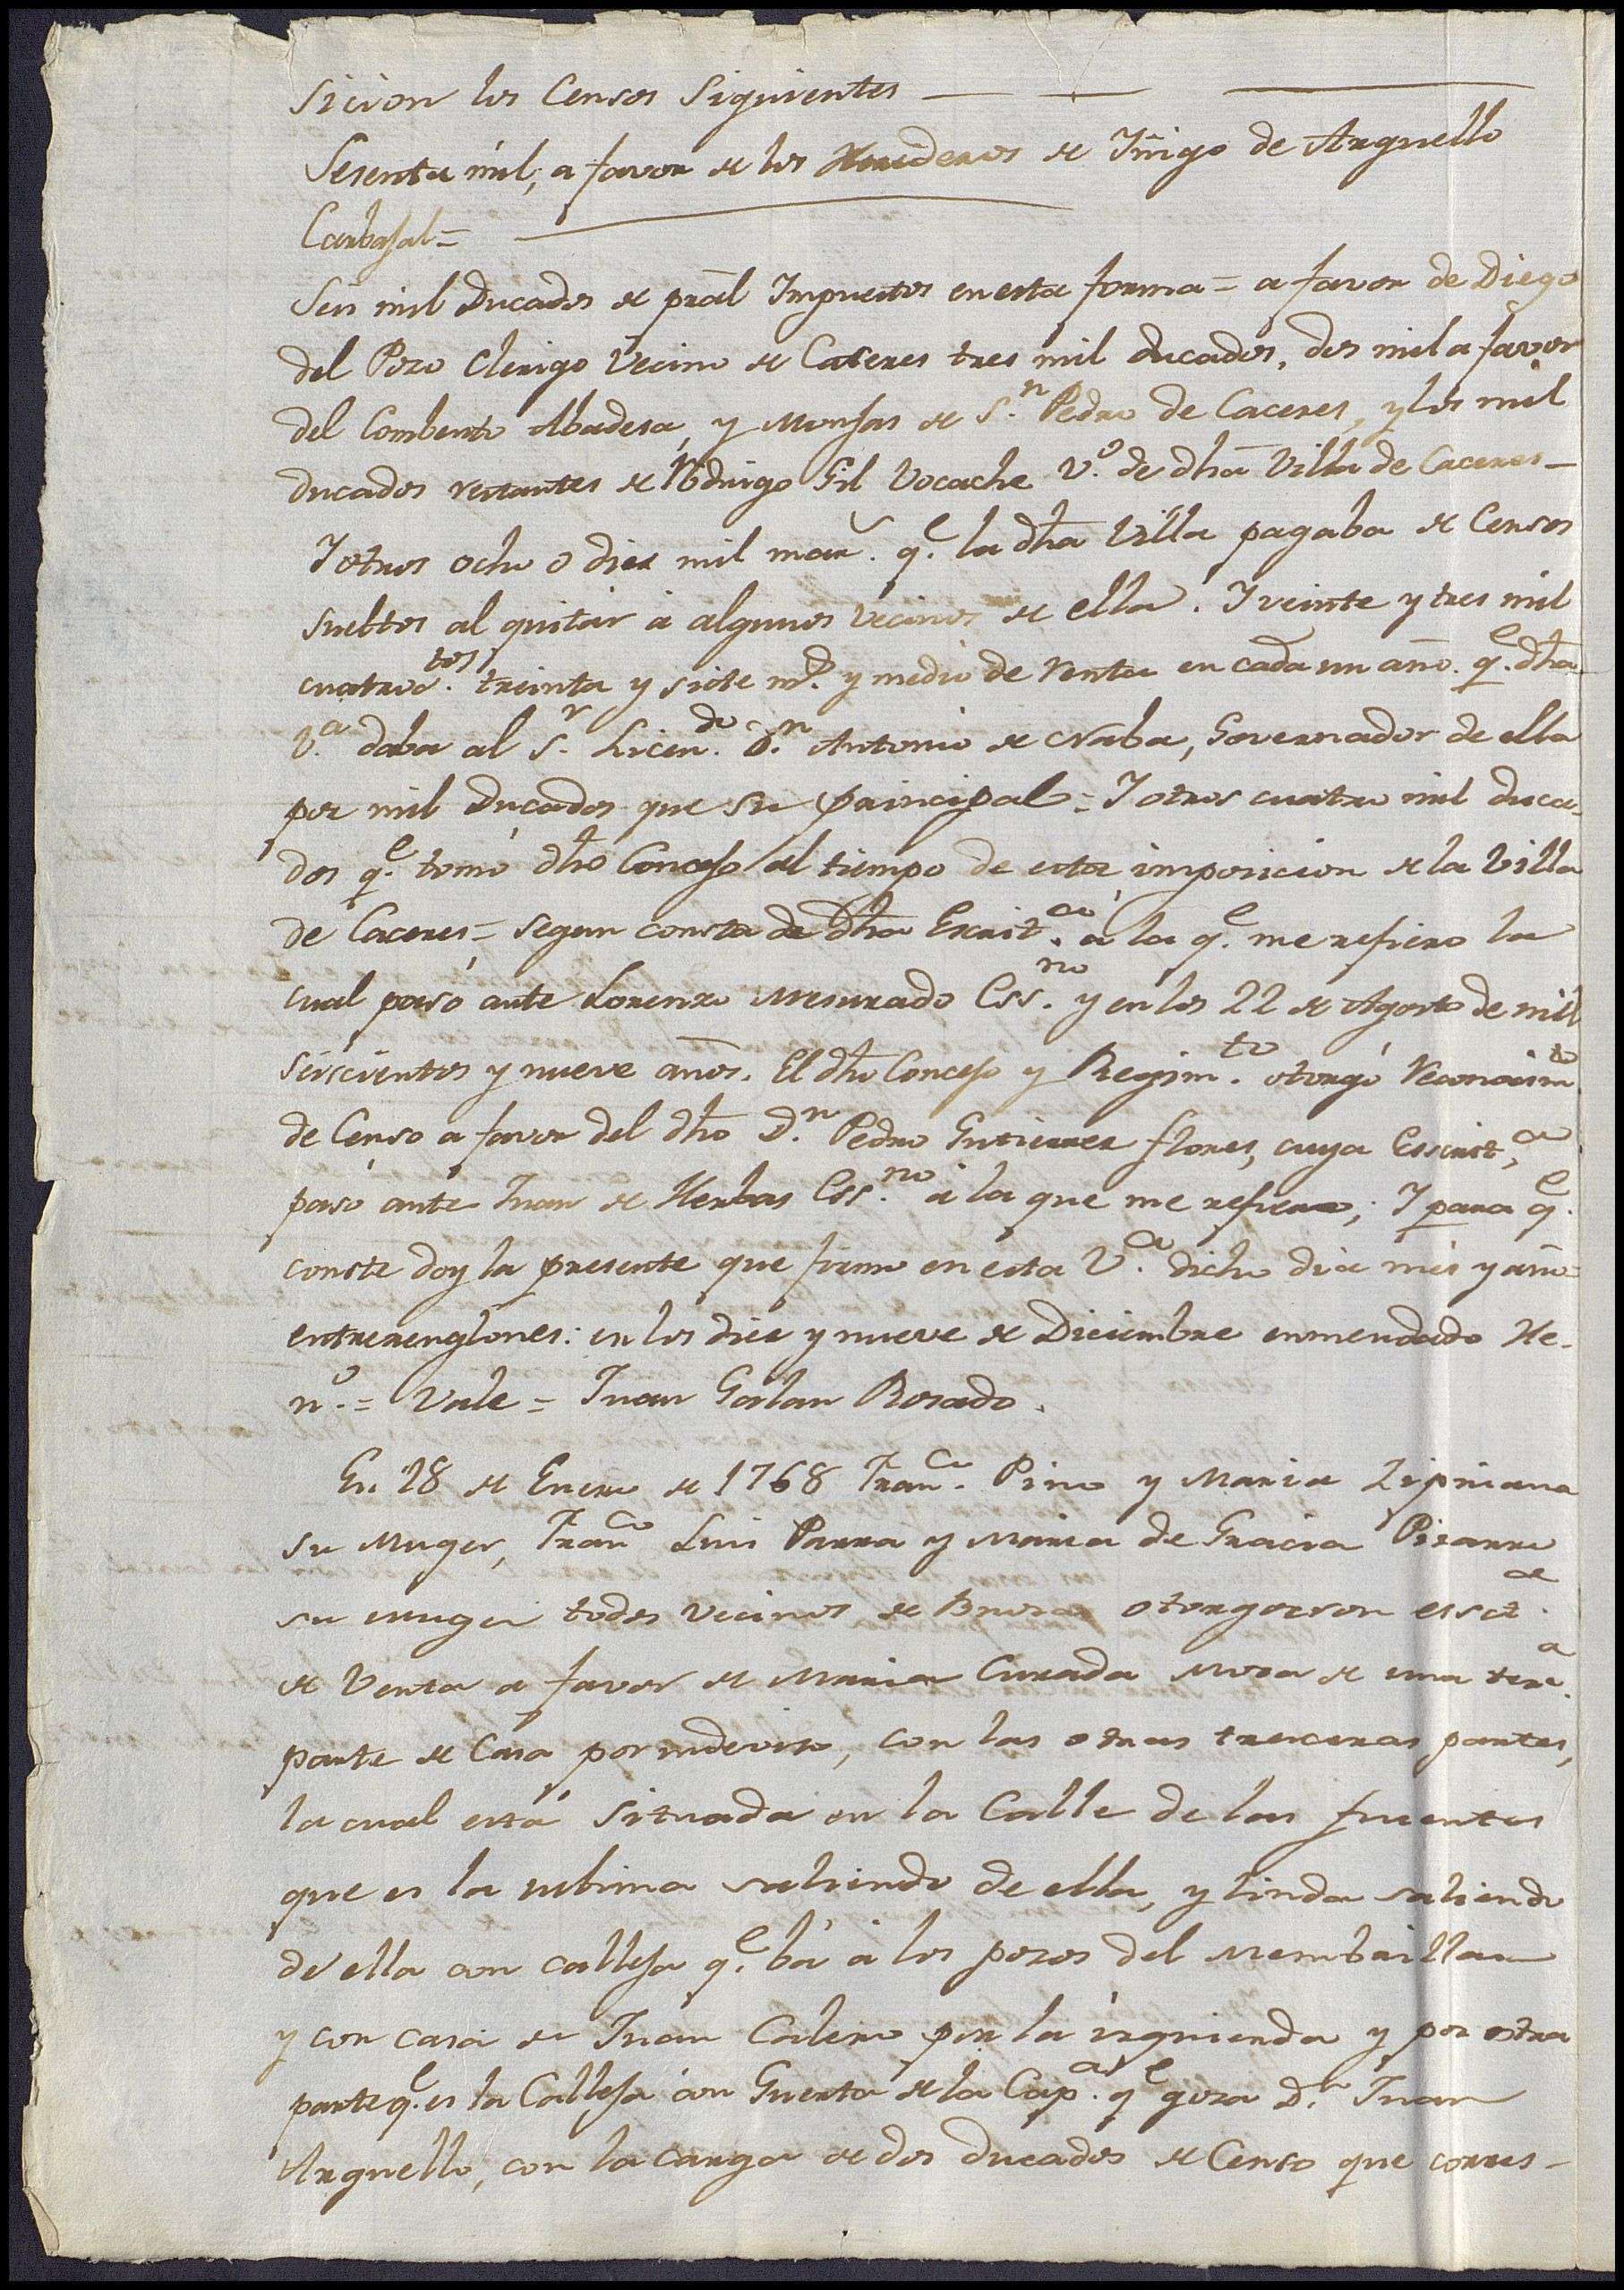 sicion los Censos Siguientes
Sesenta mil, a favor de los Herederos de Yñigo de Arguello
Carbajal =
Seis mil Ducados de prāl Impuestos en esta forma = a favor de Diego
del Pozo Clerigo Vecino de Caceres tres mil ducados, dos mil a favor
del Combento Abadesa, y Monjas de S.n Pedro de Caceres, y los mil
ducados restantes de Rodrigo Gil Vocache V.o de dha Villa de Caceres =
Y otros ocho o diez mil mar.s q.e la dha Villa pagaba de Censos
sueltos al quitar à algunos vecinos de ella. Y veinte y tres mil
cuatroc.tos treinta y siete mˢ. y medio de renta en cada un año. q.e dha
V.a daba al S.r Licen.do D.n Antonio de Naba, Governador de ella
por mil Ducados que su principal = Y otros cuatro mil duca-
dos q.e tomó dho Concejo al tiempo de esta imposicion de la Villa
de Caceres = segun consta de dha Escrit.a à la q.e me refiero la
cual pasó ante Lorenzo Mesurado Ess.no y en los 22 de Agosto de mill
seiscientos y nueve años. El dho Concejo y Regim.to otorgó Reconocim.to
de Censo a favor del dho D.n Pedro Gutierrez flores, cuya Esscrit.a
pasó ante Juan de Herbas Ess.no à la que me refiero; Y para q.e
conste doy la presente que firmo en esta V.a dicho dia mes y año =
entrerenglones: en los diez y nueve de Diciembre enmendado He-
n.o = Vale = Juan Galan Rosado.
En 28 de Enero de 1768 Fran.co Pino y Maria Zipriana
su Muger, Fran.co Luis Parra y Maria de Gracia Pizarro
su muger todos vecinos de Brozas otorgaron essct.a
de Venta a favor de Maria Curada moza de una terc.a
parte de Casa por indeviso, con las otras treceras partes,
la cual está situada en la Calle de las fuentes
que es la ultima saliendo de ella, y linda saliendo
de ella con calleja q.e bá à los pozos del Membrillar
y con casa de Juan Calero por la izquierda y por otra
parte q.e es la Calleja con Guerta de la Cap.as q.e goza D.n Juan
Arguello, con la carga de dos ducados de Censo que corres-